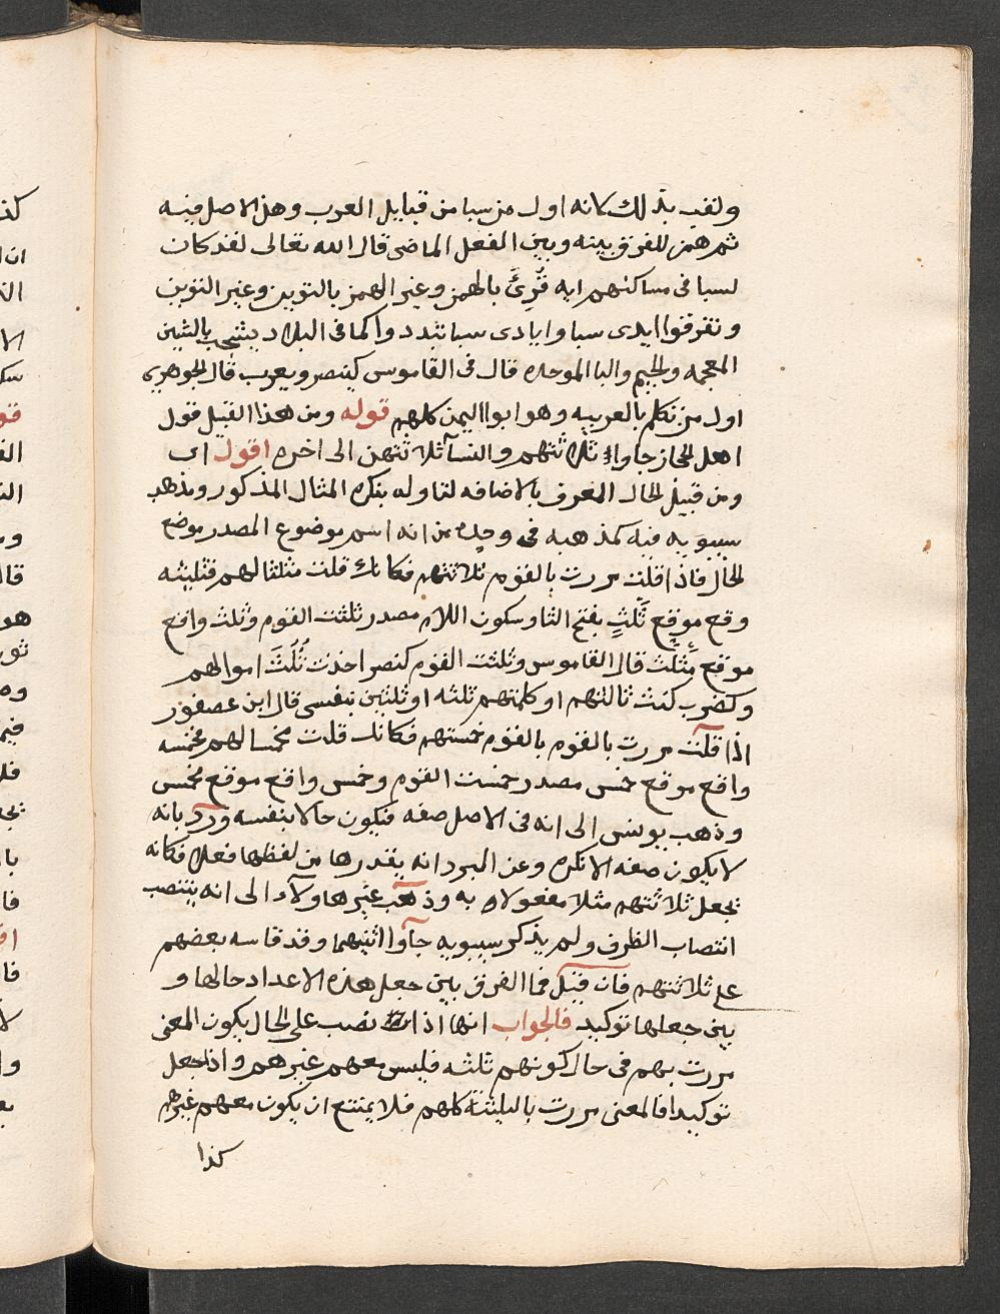 ولقب بذلك لانه اول من سبا من قبايل العرب وهذا الاصل فيه
ثم همز للفرق بينه وبين الفعل الماضى قال الله تعالى لقد كان
لسبا فى مساكنهم ايه قُرِئَ بالهمز وغير الهمز بالتنوين وغير التنوين
وتفرقوا ايدى سبا وايادى سبا تبددوا كما فى البلاد يشجب بالشين
المعجمه والجيم والبا الموحده قال فى القاموس كينصر ويعرب قال الجوهرى
اول من تكلم بالعربيه وهو ابوا اليمن كلهم قوله ومن هذا القبيل قول
اهل الحجاز جاوا ثلاثتهم والنسآ ثلاثتهن الى اخره اقول اى
ومن قبيل الحال المعرف بالاضافه لتاوله بنكره المثال المذكور ومذهب
سيبويه فيه كمذهبه فى وحده من انه اسم موضوع المصدر موضع
الحال فاذا قلت مررت بالقوم ثلاثتهم فكانك قلت مثلثا لهم فثليثه
وقع موقع ثَلْثٍ بفتح الثا وسكون اللام مصدر ثلثت القوم وثلث واقع
موقع مثلث قال القاموس وثلثت القوم كنصر اخذت ثُلُثَ اموالهم
وكضرب كنت ثالثهم او كلمتهم ثلثه او ثلثين بنفسى قال ابن عصفور
اذا قلت مررت بالقوم بالقوم خمستهم فكانك قلت مخمسا لهم فخمسه
واقع موقع خمس مصدر خمست القوم وخمس واقع موقع مخمس
وذهب يونس الى انه فى الاصل صفه فيكون حالا بنفسه ورد بانه
لا يكون صفه الا نكره وعن المبرد انه يقدر ها من لفظها فعلا فكانه
يجعل ثلاثتهم مثلا مفعولا به وذهب غير هاولآء الى انه ينتصب
انتصاب الظرف ولم يذكر سيبويه جآوا اثنيهما وقد قاسه بعضهم
على ثلاثتهم فان قيل فما الفرق بين جعل هذه الاعداد حالها و
بين جعلها توكيد فالجواب انها اذا نصب على الحال يكون المعنى
مررت بهم فى حال كونهم ثلثه فليس معهم غيرهم واذا جعل
توكيدا فالمعنى مررت بالثلثة كلهم فلا يمتنع ان يكون معهم غيرهم
كذا